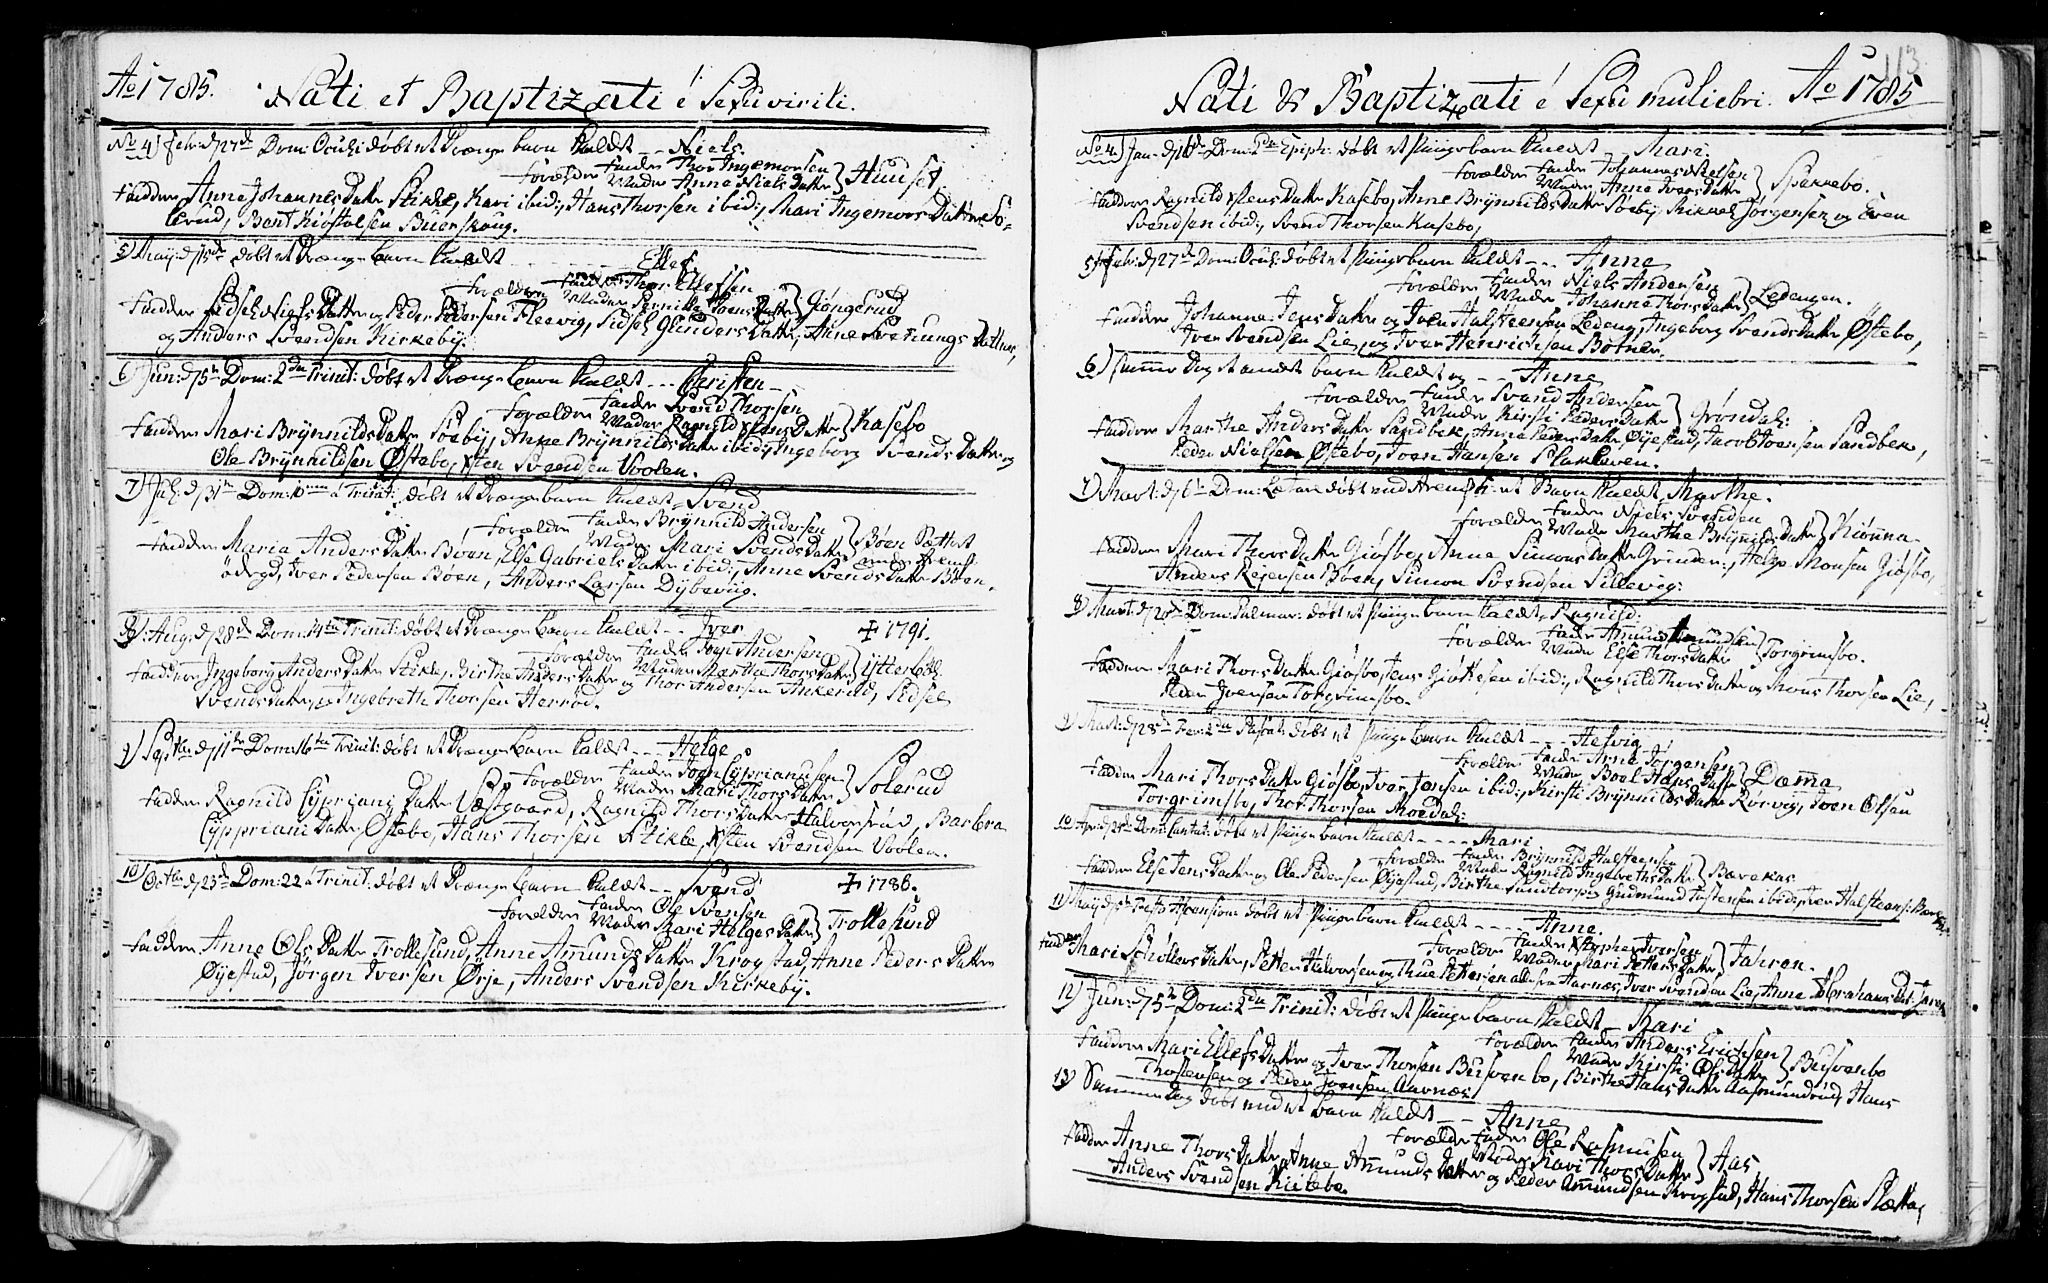 Ao 1785. Nati et Baptizati é Sexu virili.
No 4) Febr: d 27de Dom: Oculi døbt et Drænge barn kaldt -- Niels.
Forældre Fader Thor Ingemorsen
Moder Anna Niels Datter } Huuset
Faddere Anne Johannes Datter Stikle, Kari ibid:, Hans Thorsen ibid:, Mari Ingemors Datter
Bent Kiøstolsen Buerskoug.
5) May: d 15de døbt et Drænge barn kaldt ---- Ellef
Forældre Fader Thor Ellefsen
Moder Pernille Joens Datter } Giøngerud
Faddere Sidsel Niels Datter og Peder Pedersen Flesvig, Sidsel Gunders Datter, Anne Svenungs Datter,
og Anders Svendsen Kirkeby.
6) Jun: d 5te Dom: 2da Trinit: døbt et Drænge barn kaldt --- Christen
Forældre Fader Svend Thorsen
Moder Ragnild Xstens Datter } Kasebo
Faddere Mari Brynnilds Datter Søeby, Anne Brynnilds Datter ibid:, Ingeborg Svends Datter og
Ole Brynnildsen Østebo, Xsten Svendsen Voolen.
7) Jul: d 31te Dom: 10ma á Trinit: døbt et Drænge barn kaldt - Svend
Forældre Fader Brynnild Andersen
Moder Mari Svends Datter } Bøen
Faddere Maria Anders Datter Bøen, Else Gabriels Datter ibid:, Anne Svends Datter Bøen,
Iver Pedersen Bøen, Anders Larsen Dybevig.
8) Aug: d 28de Dom: 14ta Trinit: døbt et Drænge barn kaldt -- Iver ✝ 1791.
Forældre Fader Joen Andersen
Moder Marthe Thors Datter } Ytterbøl
Faddere Ingeborg Anders Datter Stikle, Birthe Anders Datter og Thor Andersen Ankerild, Sidsel
Svends Datter, og Ingebreth Thorsen Herrød.
9) Septbr d 11te Dom: 16ta Trinit: døbt et Drænge barn kaldt --- Helge
Forældre Fader Joen Cyprianusen
Moder Mari Thors Datter } Solerud
Faddere Ragnild Cypriani Datter Væstgaard, Ragnild Thors Datter Halvorsrud, Barbra
Cyppriani Datter Østebo, Hans Thorsen Stikle, Xsten Svendsen Voolen.
10) Octbr d 23de Dom: 22 á Trinit: døbt et Drænge barn kaldt -- Svend ✝ 1786.
Forældre Fader Ole Svensen
Moder Mari Helges Datter } Trollesund
Faddere Anne Ols Datter Trollesund, Anne Amunds Datter Krogstad, Anne Peders Datter
Øijestad, Jørgen Iversen Ørje, Anders Svendsen Kirkeby.
113
Nati & Baptizati é Sexu muliebri. Ao 1785
No 4) Jan: d 16de Dom: 2da Epiph: døbt et Pinge barn kaldt -- Mari.
Forældre Fader Johannes Nielsen
Moder Anne Ivers Datter } Spækkebo.
Faddere Ragnild Xstens Datter Kasebo, Anne Brynnilds Datter Søeby, Mikkel Jørgensen og Even
Svendsen ibid:, Svend Thorsen Kasebo,
5) Febr: d 27de Dom: Oculi: døbt et Pinge barn kaldt --- Anne
Forældre Fader Niels Andersen
Moder Johanna Thors Datter } Ledengen.
Faddere Johanna Jens Datter og Iver Halsteensen Ledeng, Ingeborg Svends Datter Østebo,
Iver Svendsen Lie, og Iver Henrichsen Botner.
6) Samme Dag et andet barn kaldt og -- Anne
Forældre Fader Svend Andersen
Moder Kirsti Peders Datter } Grøndal:
Faddere Marthe Anders Datter Sandbek, Anne Peders Datter Øijestad, Jacob Joensen Sandbek,
Peder Nielsen Østebo, Joen Hansen
7) Mart: d 6te Dom: Lætare døbt ved Aremsh: et Barn kaldt, Marthe.
Forældre Fader Niels Svendsen
Moder Marthe Brynilds Datter } Kiønna-
Faddere Mari Thors Datter Giøsbo, Anne Simons Datter Grinder:, Helge Monsen Giøsbo,
Anders Rejersen Bøen, Simon Svendsen Sillevig:
8) Mart: d 20de Dom: Palmar: døbt et Pinge barn kaldt, Ragnild:
Forældre Fader Amund Amundsen
Moder Else Thors Datter } Torgrimsbo.
Faddere Mari Thors Datter Giøsbo, Jens ibid:, Ragnild Thors Datter og Mons Thorsen Lie,
Peder Joensen Torgrimsbo.
9) Mart: d 28de Fer: 2da Paschat: døbt et Pinge barn kaldt --- Helvig
Forældre Fader Arne Jørgensen
Moder Boel Hans Datter } Damma
Faddere Mari Thors Datter Giøsbo, Iver Jonsen ibid:, Kirsti Brynnilds Datter Rørvig, Joen Olsen
Torgrimsbo, Thor Thorsen Moedal:
10) Apr: d 24de Dom: Cantat: døbt et Pinge barn kaldt ---- Mari
Forældre Fader Brynnild Halsteensen
Moder Ragnild Ingebreths Datter } Bærekas.
Faddere Else Jens Datter og Ole Pedersen Øijestad, Birthe Sundtorp og Gudmund Tostensen ibid:, Iver Halsteens: Bærekas.
11) May d 5te Festo Ascensionis døbt et Pinge barn kaldt ---- Anne.
Forældre Fader Xstopher Iversen
Moder Mari Petters Datter } Jahren.
Faddere Mari Schøllers Datter, Petter Halvorsen og Thue Pettersen alle fra Aarnæs, Iver Svendsen Lie, Anne Abrahams Dat: Jaren
12) Jun: d 5te Dom: 2da Trinit: døbt et Pinge barn kaldt -- Kari
Forældre Fader Anders Erichsen
Moder Kirsti Ols Datter } Busvenbo
Faddere Mari Ellefs Datter og Iver Thorsen Busvenbo, Birthe Hans Datter Aasmundrud, Hans
Thostensen og Peder Joensen Aarnæs.
13) Samme Dag døbt end et barn kaldt -- Anne
Forældre Fader Ole Rasmusen
Moder Kari Thors Datter } Aas,
Faddere Anne Thors Datter, Anne Amunds Datter og Peder Amundsen Krogstad, Hans Thorsen Slætta,
Anders Svendsen Kirkebo.